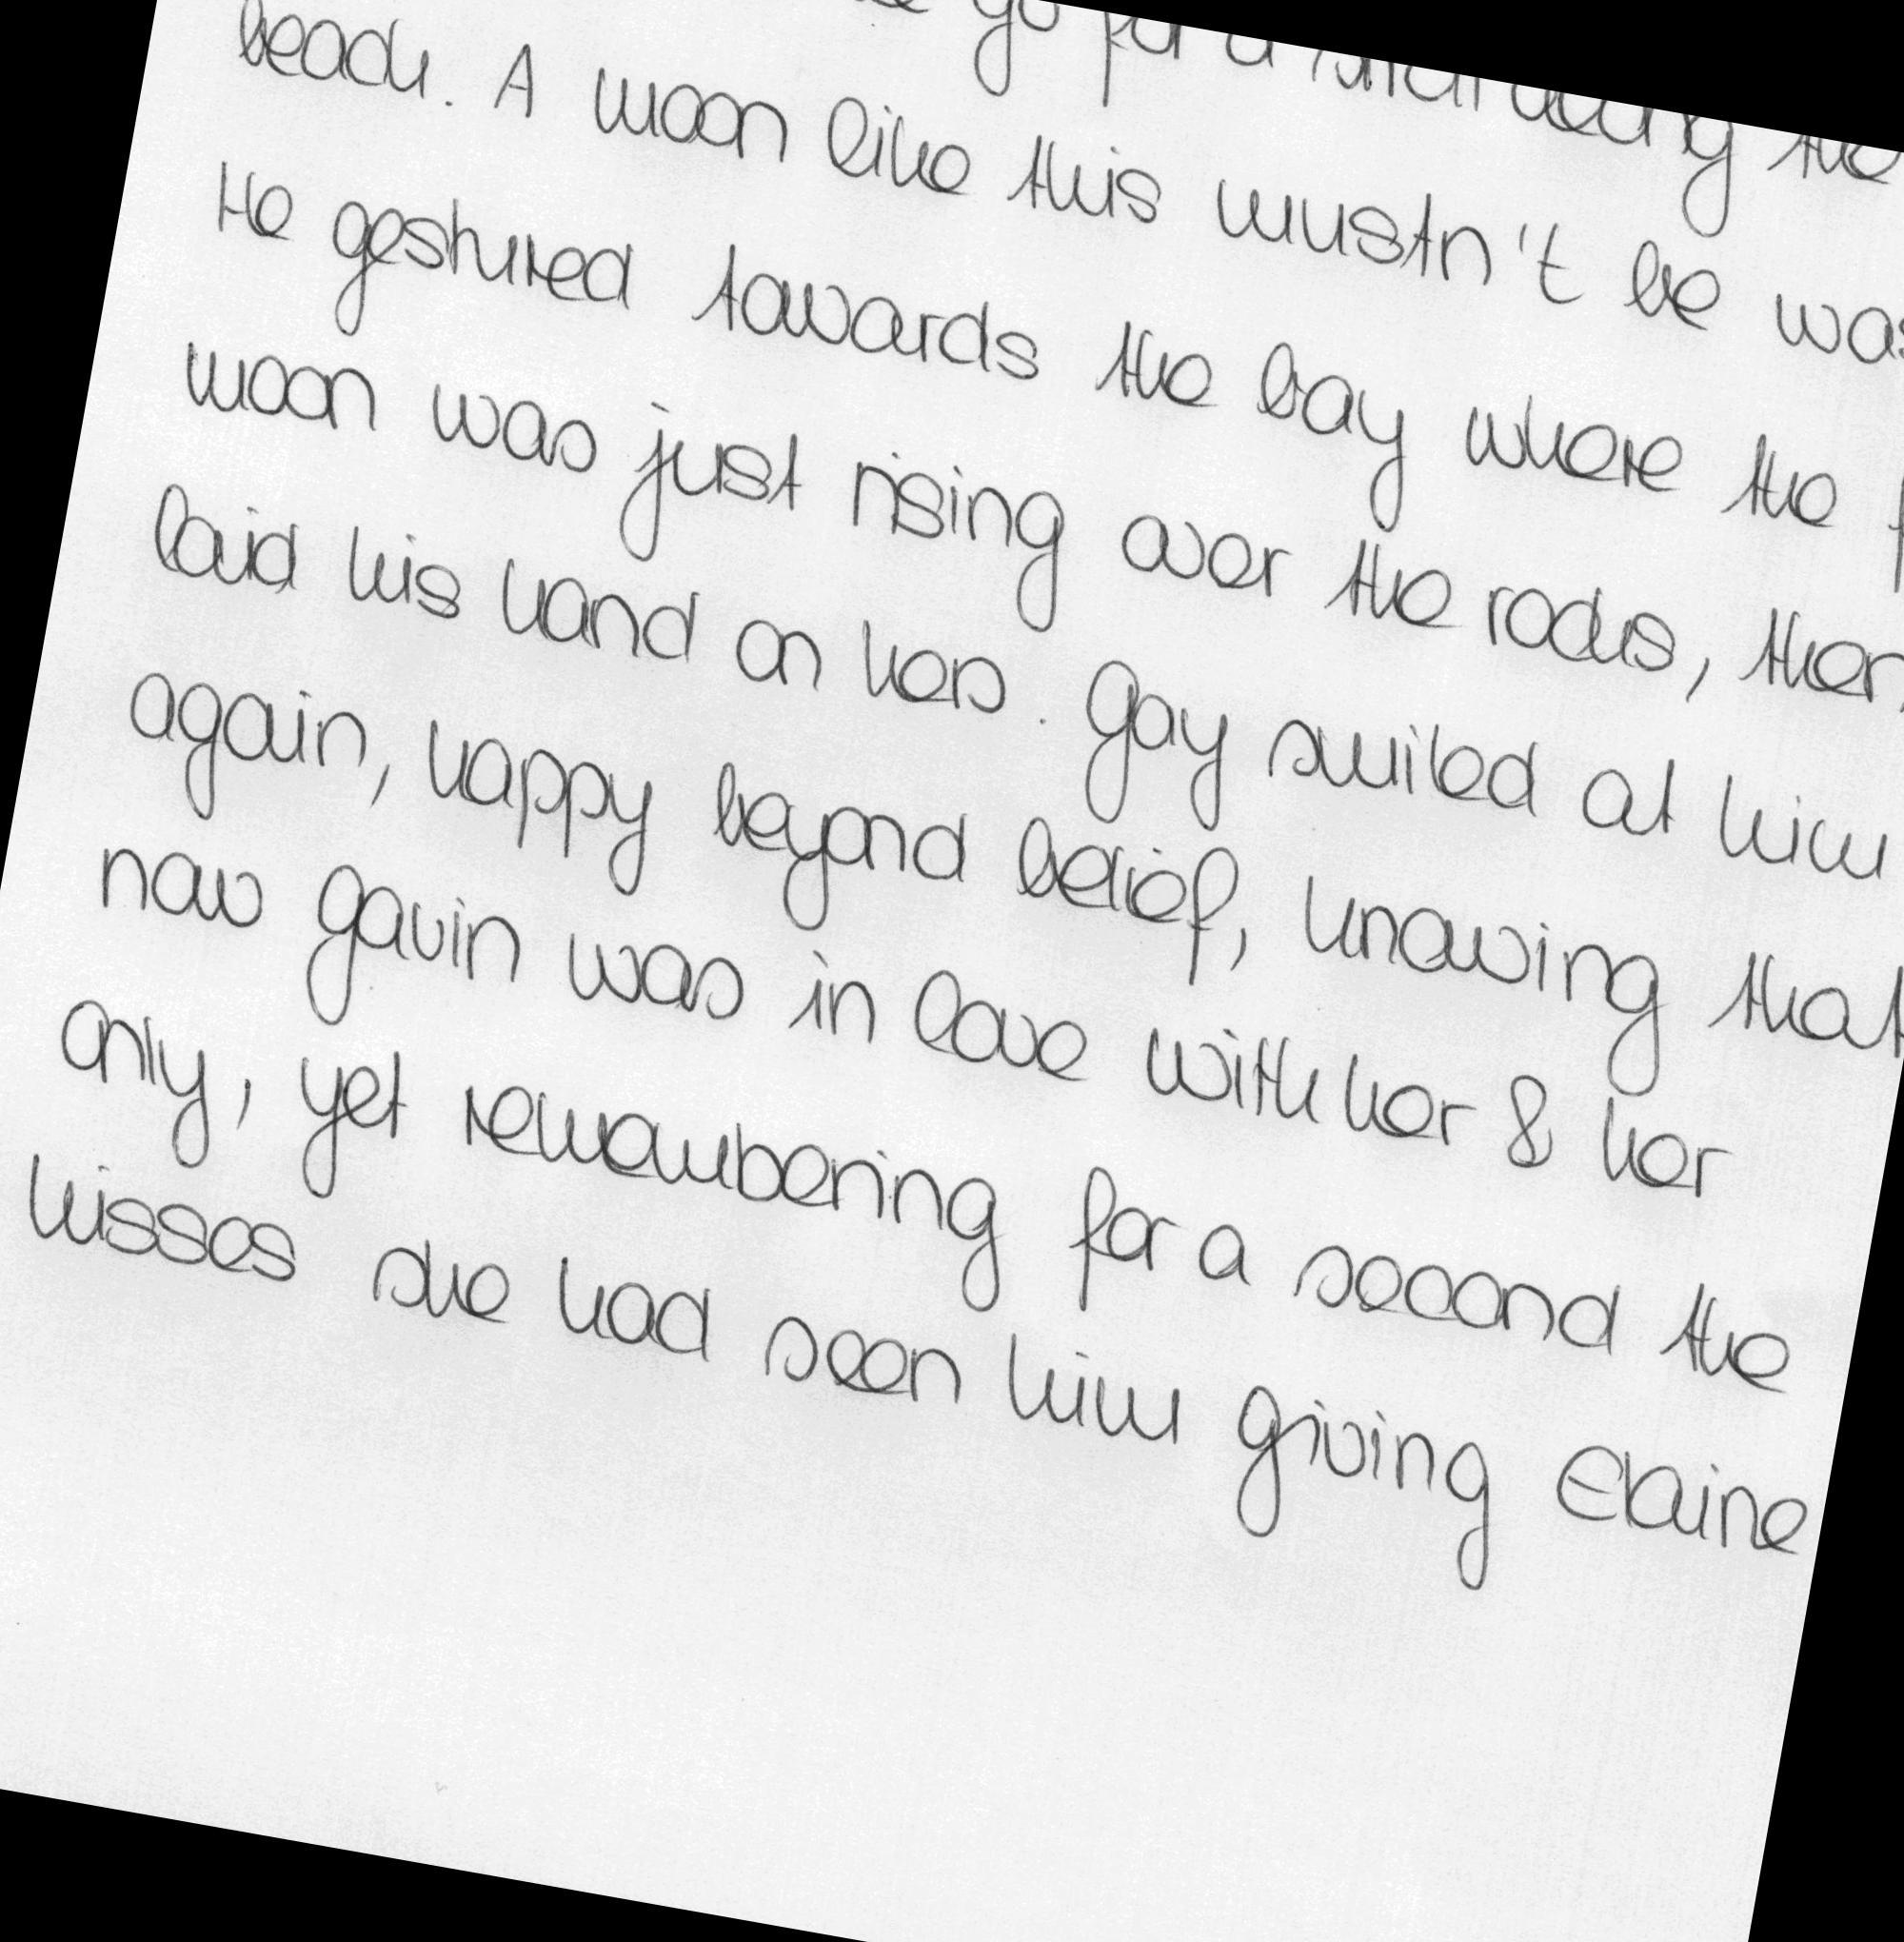 go for a stroll along the
beach. A moon like this mustn't be
He gestured towards the bay where the
moon was just rising over the rocks, then
laid his hand on hers. Gay smiled at him
again, happy beyond belief, knowing that
now Gavin was in love with her & her
only, yet remembering for a second the
kisses she had seen him giving Elaine